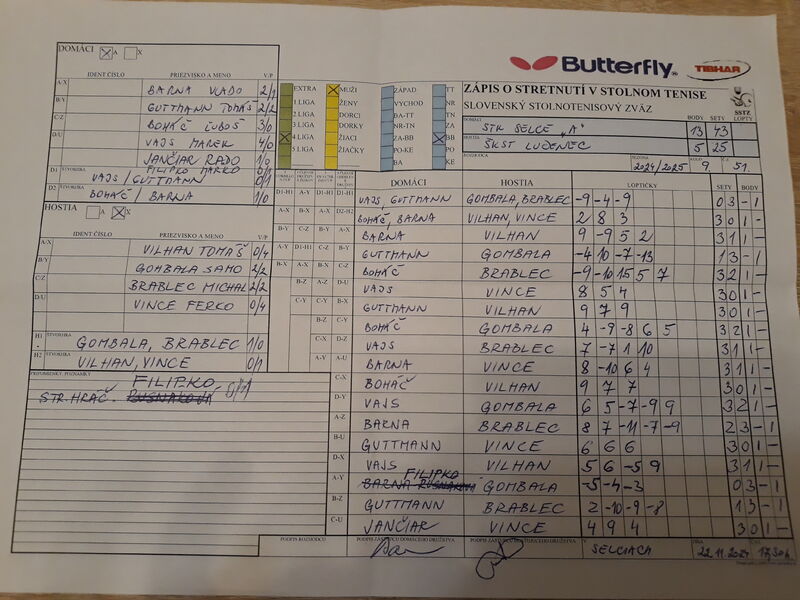 DOMÁCI A X
IDENT ČÍSLO PRIEZVISKO A MENO V/P
A-X BARNA VLADO 2/1
B/Y GUTTMANN TOMÁŠ 2/2
C-Z BOHÁČ ĽUBOŠ 3/0
D-U VAJS MAREK 4/0
JANČIAR RADO 1/0
FILIPKO MARKO 0/1
D1 VAJS / GUTTMANN 0/1
D2 BOHÁČ / BARNA 1/0
HOSTIA A X
IDENT ČÍSLO PRIEZVISKO A MENO V/P
A-X VILHAN TOMÁŠ 0/4
B/Y GOMBALA SAMO 2/2
C-Z BRABLEC MICHAL 2/2
D-U VINCE FERKO 0/4
H1 ŠTVORHRA GOMBALA, BRABLEC 1/0
H2 ŠTVORHRA VILHAN, VINCE 0/1
PRIPOMIENKY, POZNAMKY
FILIPKO
STR. HRÁČ. RUSNAKOVÁ 0/1
EXTRA MUŽI ZÁPAD TT
1 LIGA ŽENY VÝCHOD NR
2 LIGA DORCI BA-TT TN
3 LIGA DORKY NR-TN ZA
4 LIGA ŽIACI ZA-BB BB
5 LIGA ŽIAČKY PO-KE PO
BA KE
Butterfly TIBHAR
ZÁPIS O STRETNUTÍ V STOLNOM TENISE
SLOVENSKÝ STOLNOTENISOVÝ ZVÄZ
SSTZ
BODY SETY LOPTY
DOMÁCI STK SELCE "A" 13 43
HOSTIA ŠKST LUČENEC 5 25
2024/2025 9. 51.
DOMÁCI HOSTIA LOPTIČKY SETY BODY
VAJS, GUTTMANN GOMBALA, BRABLEC -9 -4 -9 0 3 - 1
BOHÁČ, BARNA VILHAN, VINCE 2 8 3 3 0 1 -
BARNA VILHAN 9 -9 5 2 3 1 1 -
GUTTMANN GOMBALA -4 10 -7 -13 1 3 - 1
BOHÁČ BRABLEC -9 -10 15 5 7 3 2 1 -
VAJS VINCE 8 5 4 3 0 1 -
GUTTMANN VILHAN 9 7 9 3 0 1 -
BOHÁČ GOMBALA 4 -9 -8 6 5 3 2 1 -
VAJS BRABLEC 7 -7 1 10 3 1 1 -
BARNA VINCE 8 -10 6 4 3 1 1 -
BOHÁČ VILHAN 9 7 7 3 0 1 -
VAJS GOMBALA 6 5 -7 -9 9 3 2 1 -
BARNA BRABLEC 8 7 -11 -7 -9 2 3 - 1
GUTTMANN VINCE 6 6 6 3 0 1 -
VAJS VILHAN 5 6 -5 9 3 1 1 -
FILIPKO
BARNA RUSNAKOVÁ GOMBALA -5 -4 -3 0 3 - 1
GUTTMANN BRABLEC 2 -10 -9 -8 1 3 - 1
JANČIAR VINCE 4 9 4 3 0 1 -
PODPIS ROZHODCU PODPIS ZÁSTUPCU DOMÁCEHO DRUŽSTVA PODPIS ZÁSTUPCU HOSŤUJÚCEHO DRUŽSTVA V SELCIACH DŇA 22.11.2024